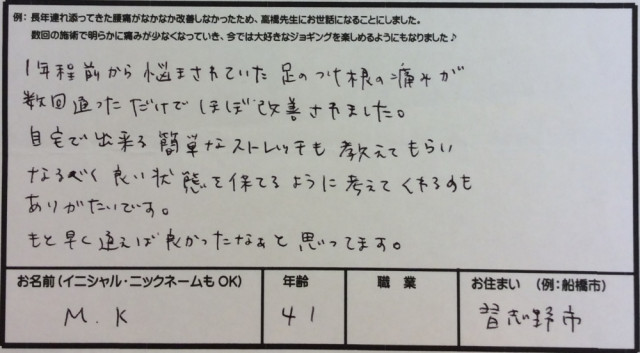 例：長年連れ添ってきた腰痛がなかなか改善しなかったため、高橋先生にお世話になることにしました。
数回の施術で明らかに痛みが少なくなっていき、今では大好きなジョギングを楽しめるようにもなりました♪
1年程前から悩まされていた足のつけ根の痛みが
数回通っただけでほぼ改善されました。
自宅で出来る簡単なストレッチも教えてもらい
なるべく良い状態を保てるように考えてくれるのも
ありがたいです。
もと早く通えば良かったなぁと思ってます。
お名前（イニシャル・ニックネームもOK） 年齢 職業 お住まい（例：船橋市）
M.K 41 習志野市